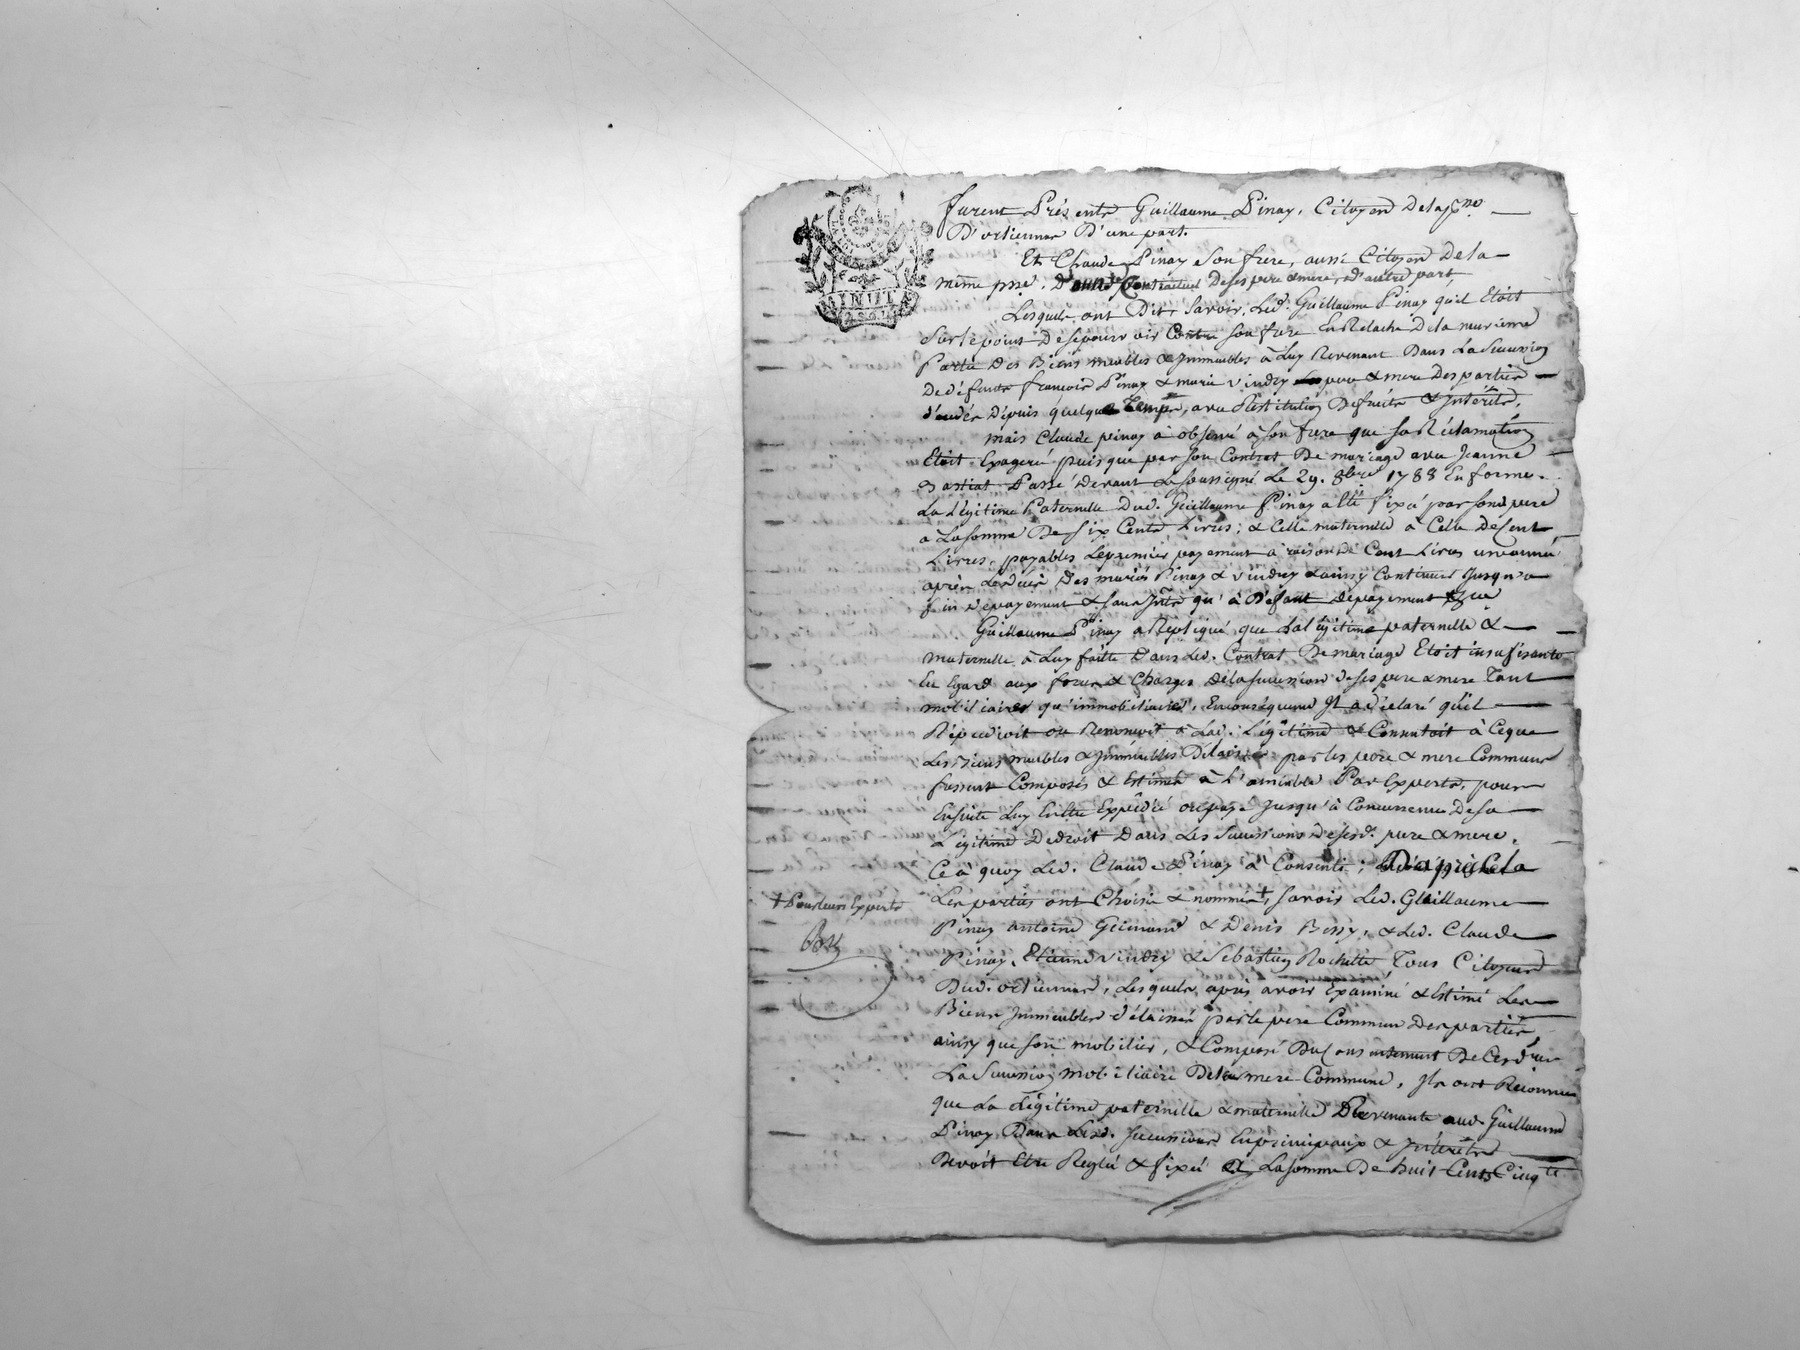 furent Présents Guillaume Pinay, Citoyen de la
D'ortiennas D'une part.
Et Claude Pinay Son frere, aussi Citoyen De la
même psse. Contractuel De ses pere & mere, D'autre part
Lesquels ont Dit, Savoir, Led. Guillaume Pinay qu'il Etoit
Sur le point De se pourvoir Contre Son frere En Relache De la
Partie Des Biens meubles & Immeubles à Luy Revenant Dans La Succession
De défunts françois Pinay & marie vindry pere & mere Des parties
décédés Dépuis quelque Temps, avec Restitution De fruits & Intérêts.
mais Claude pinay à observé à Son frere que Sa Réclamation
Etoit Exageré puisque par Son Contrat De mariage avec Jeanne
Passé Devant Le Soussigné Le 29. 8bre 1788 En forme.
La Légitime Paternelle Dud. Guillaume Pinay a Eté fixé par Sond. pere
a La Somme De Six Cents Livres; & Celle maternelle à Celle De Cent
Livres, payables Le premier payement à raison De Cent Livres un année
après Le décès Des mariés Pinay & vindry & ainsy Continuer Jusqu'a
fin De payement & Sans Ints qu'à Défaut de payement
Guillaume Pinay a Répliqué que Sa Légitime paternelle &
maternelle à Luy faitte Dans Led. Contrat De mariage Etoit insufisante
Eu Egard aux forces & Charges De la Succession De ses pere & mere Tant
mobiliaires qu'immobiliaires, En conséquence Il a Déclaré qu'il
Répudioit ou Renoncoit à Lad. Légitime & Consentoit à Ce que
Les Biens meubles & Immeubles Délaissés par les pere & mere Communs
fussent Composés & Estimés à L'amiable Par Experts, pour
Ensuite Luy En Etre Expédié Jusqu'à Concurrence De Sa
Légitime De droit Dans Les Successions De Sesd. pere & mere.
Ce à quoy Led. Claude Pinay à Consenti; D'après Cela
Les parties ont Choisi & nommés +, Savoir Led. Guillaume
+ Pour leurs Experts
Pinay antoine Guinand & Denis Bissy, & Led. Claude
Pinay, Etienne vindry & Sébastien Rochette Tous Citoyens
Dud. ortiennas, Lesquels après avoir Examiné & Estimé Les
Biens Immeubles délaissés par le pere Commun Des parties
ainsy que Son mobilier, & Composé Du Consentement De Ces derniers
La Succession mobiliaire De la mere Commune, Ils ont Reconnu
que La Légitime paternelle & maternelle Revenante aud. Guillaume
Pinay Dans Lesd. Successions En principaux & Intérêts
Devoit Etre Reglée & fixée à La Somme De huit Cents Cinqte